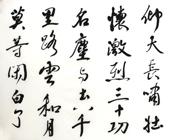 仰天長嘯壯
懷激烈三十功
名塵与土八千
里路雲和月
莫等閑白了